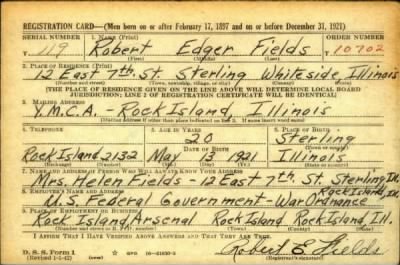 REGISTRATION CARD—(Men born on or after February 17, 1897 and on or before December 31, 1921)
SERIAL NUMBER 1. NAME (Print) ORDER NUMBER
T 119 Robert Edger Fields 10702
(First) (Middle) (Last)
2. PLACE OF RESIDENCE (Print)
12 East 7th. St. Sterling Whiteside, Illinois
(Number and street) (Town, township, village, or city) (County) (State)
[THE PLACE OF RESIDENCE GIVEN ON THE LINE ABOVE WILL DETERMINE LOCAL BOARD
JURISDICTION; LINE 2 OF REGISTRATION CERTIFICATE WILL BE IDENTICAL]
3. MAILING ADDRESS
Y.M.C.A. - Rock Island, Illinois
[Mailing address if other than place indicated on line 2. If same insert word same]
4. TELEPHONE 5. AGE IN YEARS 6. PLACE OF BIRTH
20 Sterling
DATE OF BIRTH (Town or county)
Rock Island 2132 May 1921 Illinois
(Exchange) (Number) (Mo.) (Day) (Yr.) (State or country)
7. NAME AND ADDRESS OF PERSON WHO WILL ALWAYS KNOW YOUR ADDRESS
Mrs. Helen Fields - 12 East 7th. St. Sterling, Ill.
8. EMPLOYER'S NAME AND ADDRESS Rock Island, Ill.
U.S. Federal Government - War Ordnance
9. PLACE OF EMPLOYMENT OR BUSINESS
Rock Island Arsenal Rock Island Rock Island, Ill.
(Number and street or R. F. D. number) (Town) (County) (State)
I AFFIRM THAT I HAVE VERIFIED ABOVE ANSWERS AND THAT THEY ARE TRUE.
D. S. S. Form 1 GPO 16-21630-2 Robert E Fields
(Revised 1-1-42) (over) (Registrant's signature)